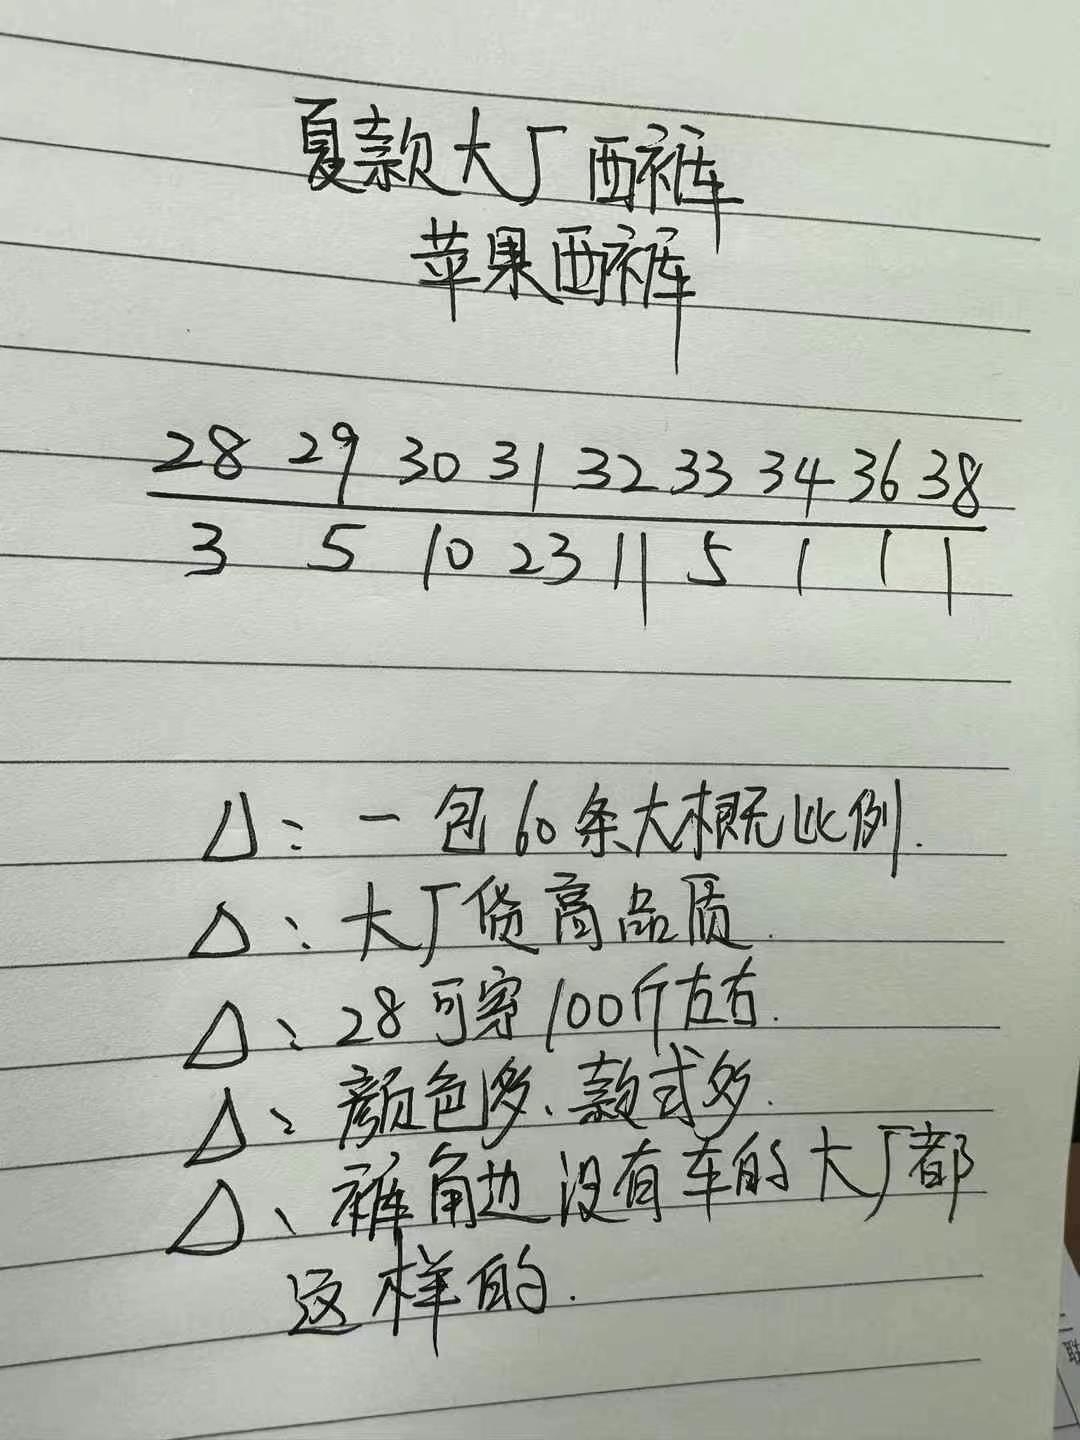 夏款大厂西裤
苹果西裤
28 29 30 31 32 33 34 36 38
3 5 10 23 11 5 1 1 1
△：一包60条大概比例.
△：大厂货高品质.
△：28可穿100斤左右.
△：颜色多、款式多.
△、裤角边没有车的大厂都
这样的.
联